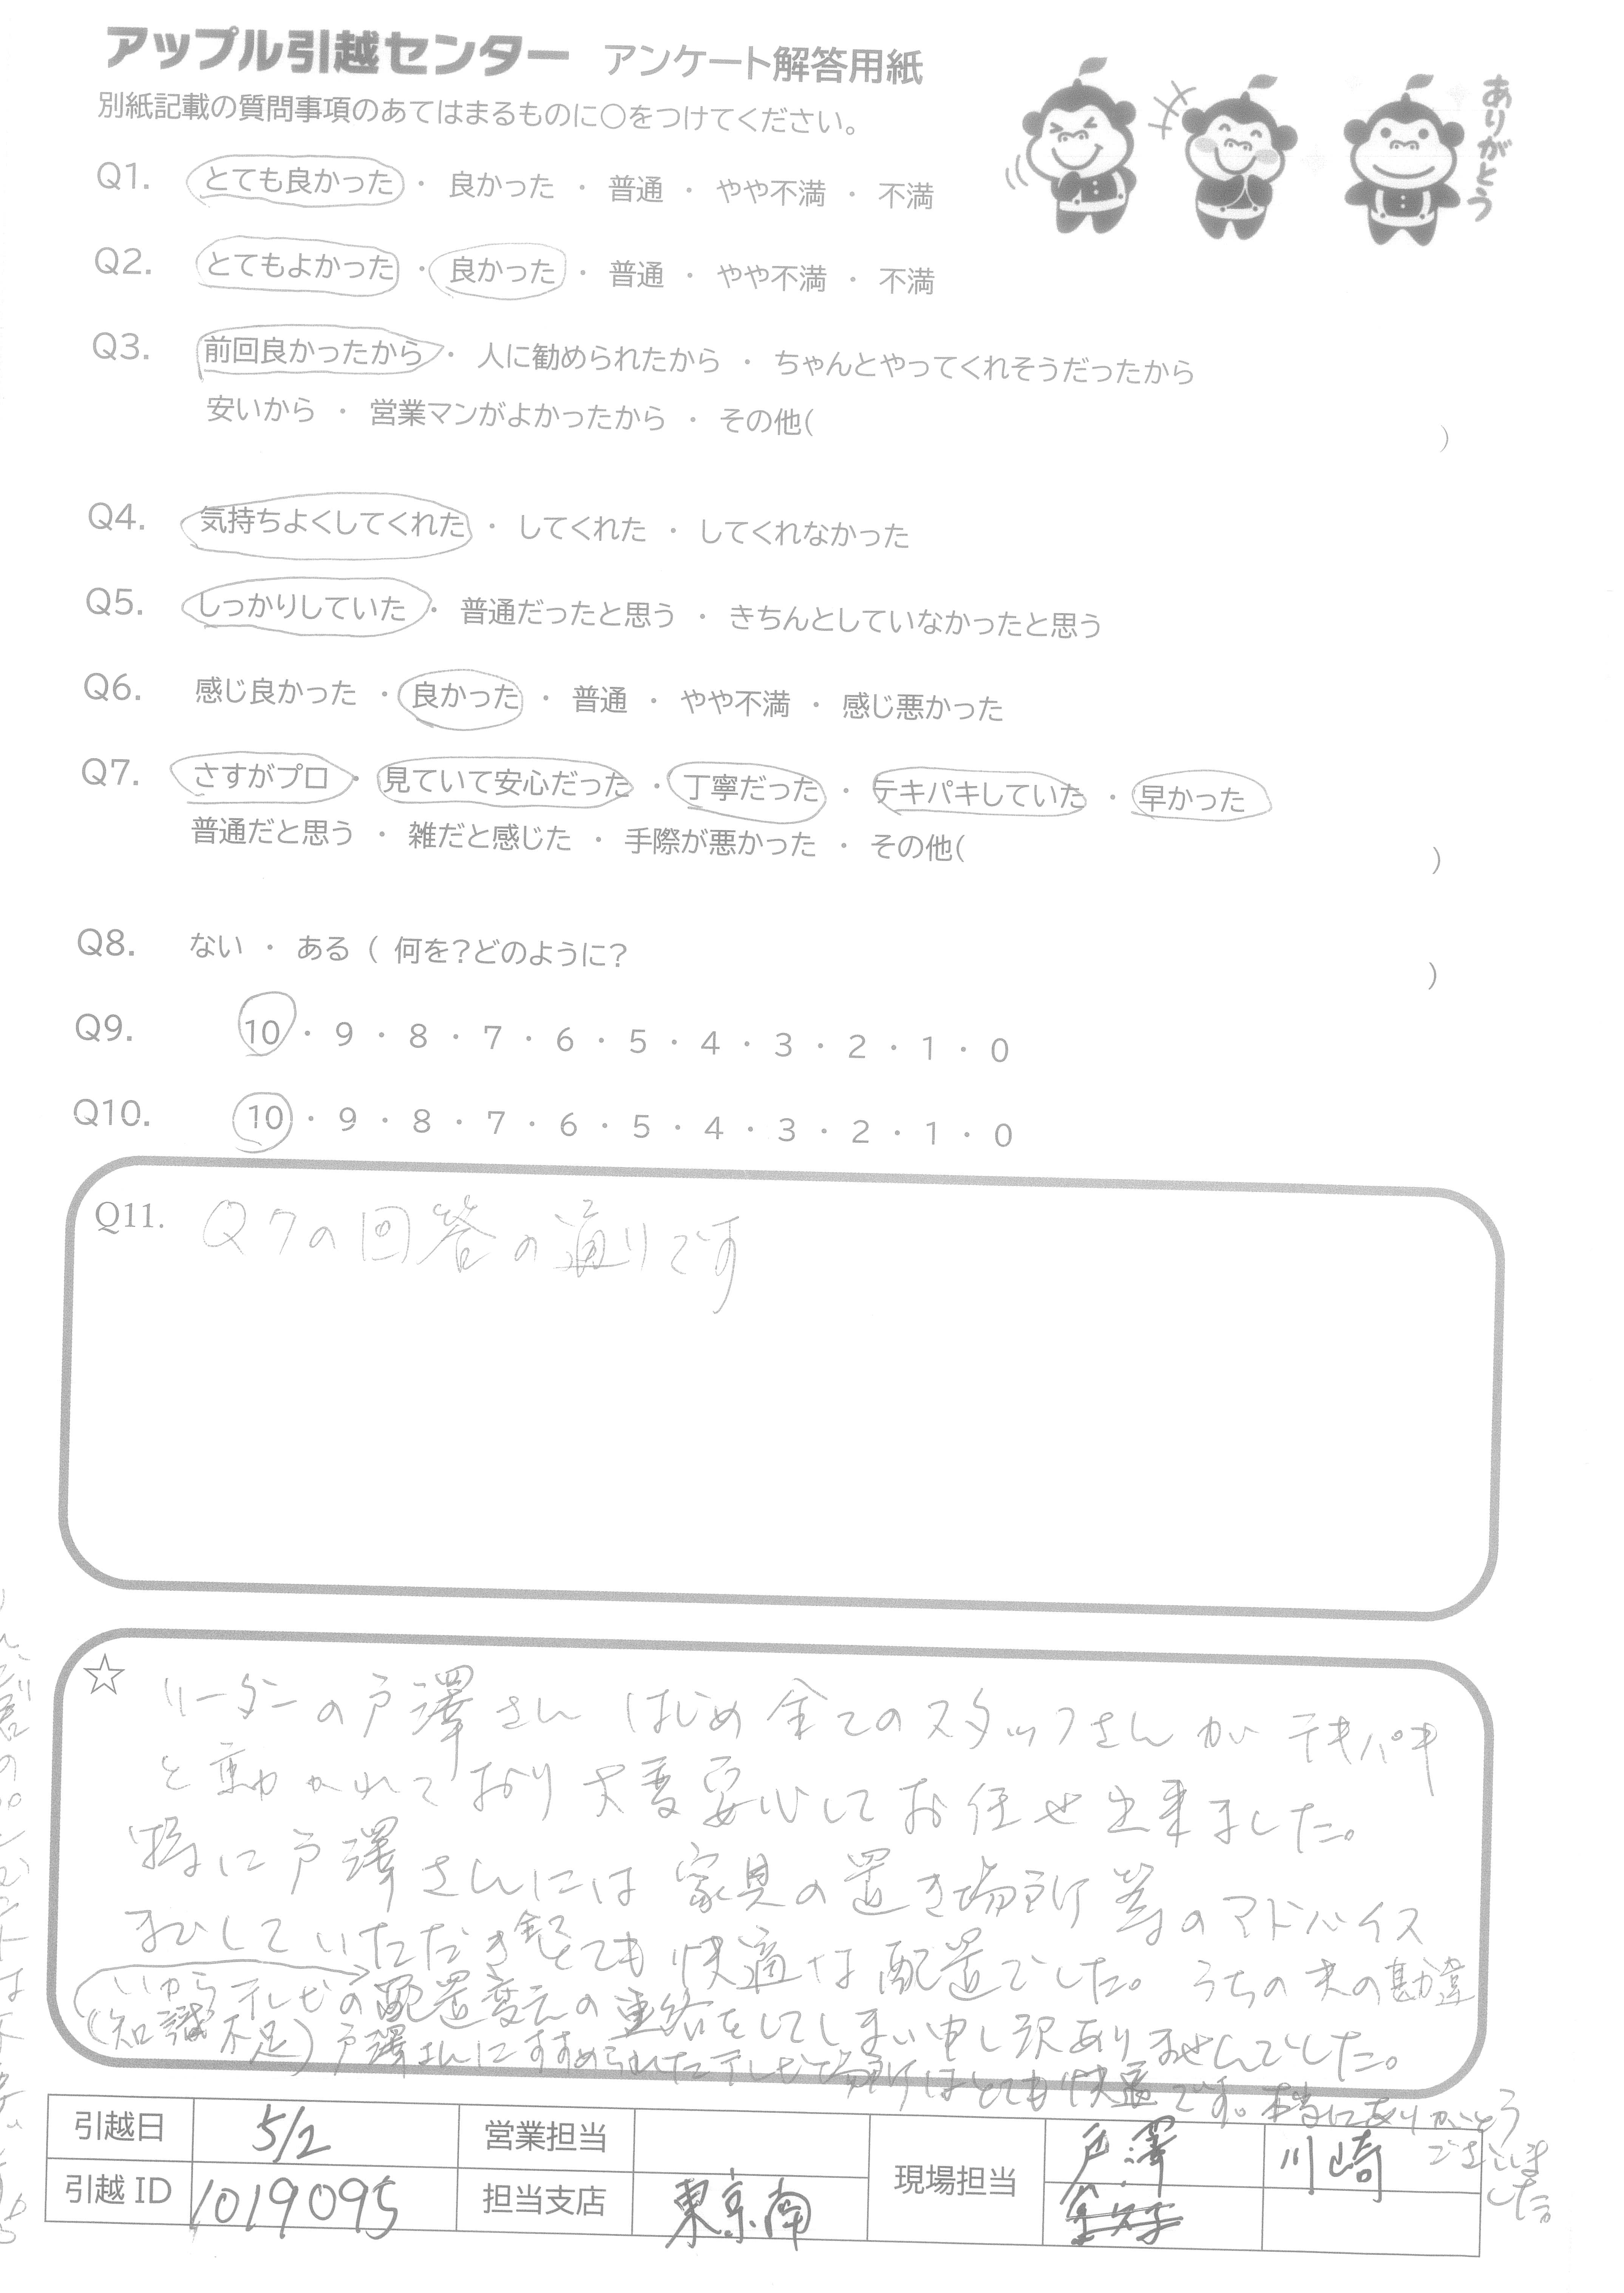 アップル引越センター アンケート解答用紙
別紙記載の質問事項のあてはまるものに○をつけてください。
ありがとう
Q1. とても良かった ・ 良かった ・ 普通 ・ やや不満 ・ 不満
Q2. とてもよかった ・ 良かった ・ 普通 ・ やや不満 ・ 不満
Q3. 前回良かったから ・ 人に勧められたから ・ ちゃんとやってくれそうだったから
安いから ・ 営業マンがよかったから ・ その他( )
Q4. 気持ちよくしてくれた ・ してくれた ・ してくれなかった
Q5. しっかりしていた ・ 普通だったと思う ・ きちんとしていなかったと思う
Q6. 感じ良かった ・ 良かった ・ 普通 ・ やや不満 ・ 感じ悪かった
Q7. さすがプロ ・ 見ていて安心だった ・ 丁寧だった ・ テキパキしていた ・ 早かった
普通だと思う ・ 雑だと感じた ・ 手際が悪かった ・ その他( )
Q8. ない ・ ある ( 何を?どのように? )
Q9. 10 ・ 9 ・ 8 ・ 7 ・ 6 ・ 5 ・ 4 ・ 3 ・ 2 ・ 1 ・ 0
Q10. 10 ・ 9 ・ 8 ・ 7 ・ 6 ・ 5 ・ 4 ・ 3 ・ 2 ・ 1 ・ 0
Q11. Q7の回答の通りです
☆ リーダーの戸澤さん はじめ 全てのスタッフさんが テキパキ
と動かれており 大変安心してお任せ出来ました。
特に戸澤さんには 家具の置き場所 等のアドバイス
までしていただき とても快適な配置でした。 うちの夫の勘違
いからテレビの配置変えの連絡をしてしまい申し訳ありませんでした。
(知識不足) 戸澤さんにすすめられたテレビ場所はとても快適です。本当にありがとう
ございました。
引越日 5/2 営業担当 現場担当 戸澤 川崎
引越 ID 1019095 担当支店 東京南